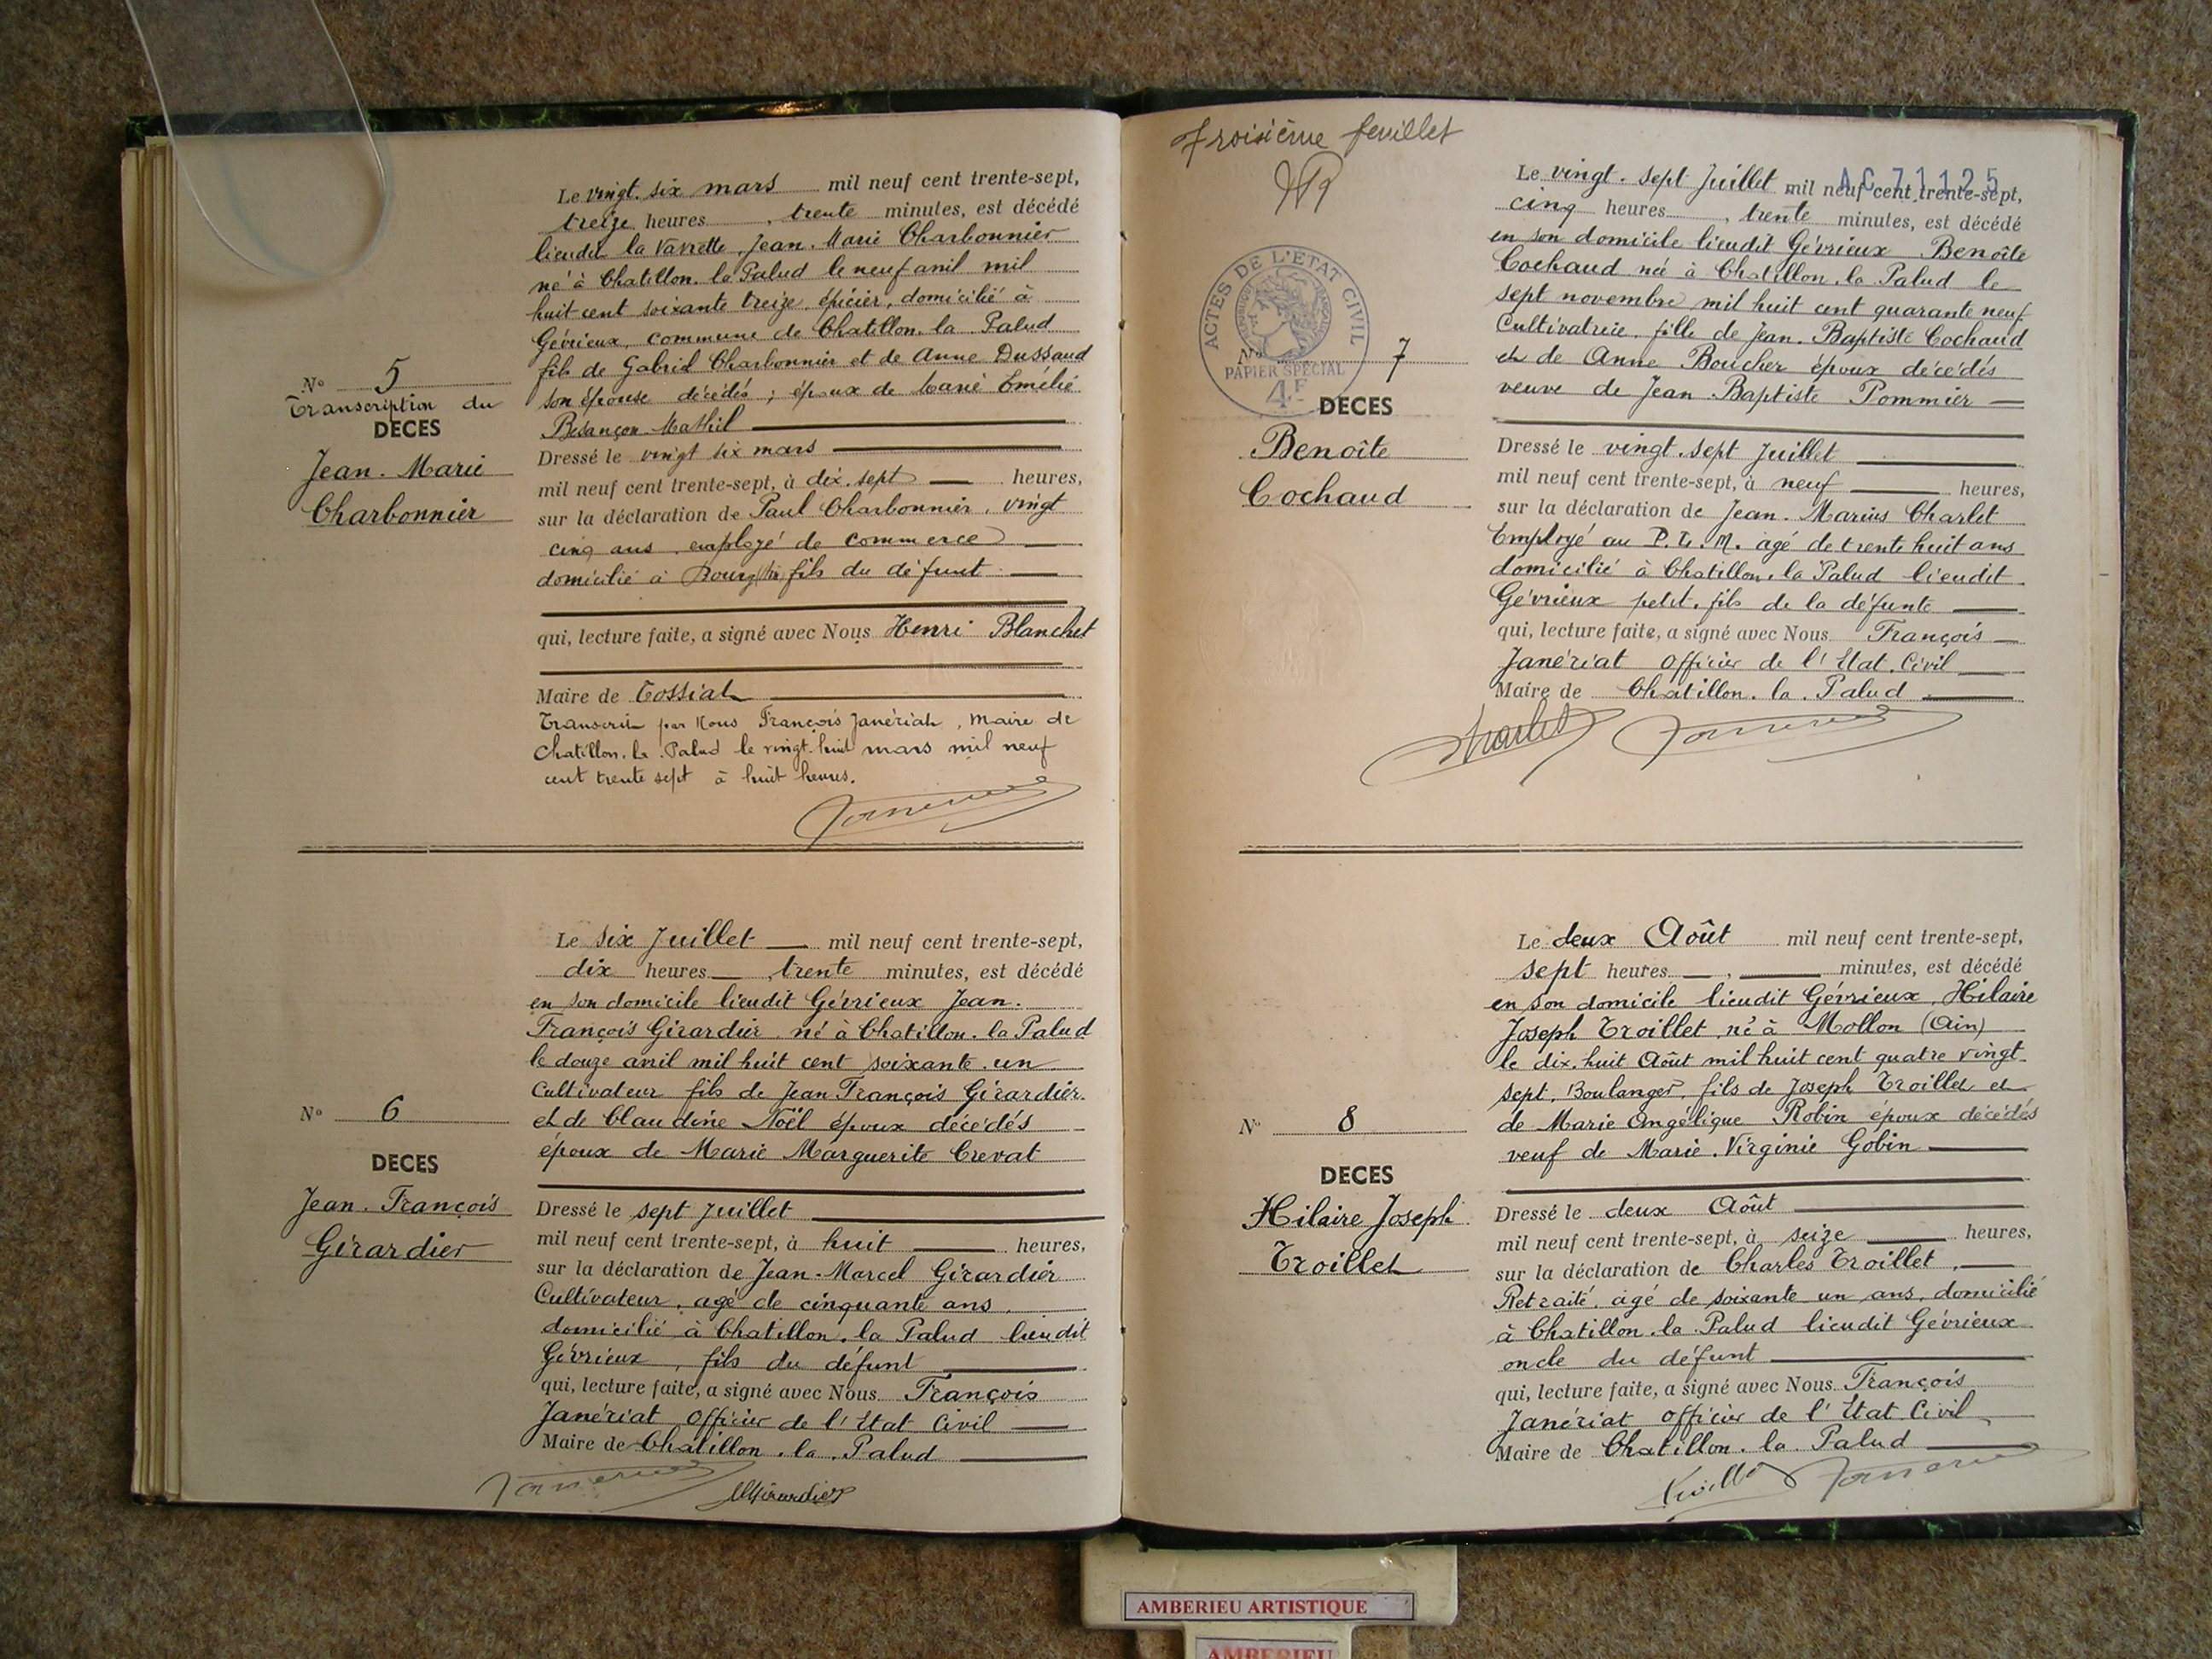 Le vingt. six mars mil neuf cent trente-sept,
treize heures, trente minutes, est décédé
lieudit la Vavrette, Jean. Marie Charbonnier
né à Chatillon. la Palud le neuf avril mil
huit cent soixante treize, épicier, domicilié à
Gévrieux, commune de Chatillon. la. Palud
fils de Gabriel Charbonnier et de Anne Dussaud
son épouse décédés ; époux de Marie Emélie
Besançon. Mathil
N° 5
Transcription du
DECES
Jean. Marie
Charbonnier
Dressé le vingt six mars
mil neuf cent trente-sept, à dix. sept heures,
sur la déclaration de Paul Charbonnier, vingt
cinq ans, employé de commerce
domicilié à Bourg fils du défunt.
qui, lecture faite, a signé avec Nous Henri Blanchet
Maire de Tossiat
Transcrit par Nous François Janériat, Maire de
Chatillon. la. Palud le vingt. huit mars mil neuf
cent trente sept à huit heures.
Le six Juillet mil neuf cent trente-sept,
dix heures, trente minutes, est décédé
en son domicile lieudit Gévrieux Jean.
François Girardier né à Chatillon. la Palud
le douze avril mil huit cent soixante. un
Cultivateur fils de Jean François Girardier.
et de Claudine Noël époux décédés
époux de Marie Marguerite Crevat
N° 6
DECES
Jean. François
Girardier
Dressé le sept Juillet
mil neuf cent trente-sept, à huit heures,
sur la déclaration de Jean. Marcel Girardier
Cultivateur, agé de cinquante ans,
domicilié à Chatillon. la Palud lieudit
Gévrieux, fils du défunt
qui, lecture faite, a signé avec Nous François
Janériat Officier de l'Etat Civil
Maire de Chatillon. la. Palud
Girardier
Troisième feuillet
AC 71125
Le vingt. sept Juillet mil neuf cent trente-sept,
cinq heures, trente minutes, est décédé
en son domicile lieudit Gévrieux Benoîte
Cochaud née à Chatillon. la Palud le
sept novembre mil huit cent quarante neuf
Cultivatrice fille de Jean. Baptiste Cochaud
et de Anne Boucher époux décédés
veuve de Jean Baptiste Pommier
ACTES DE L'ETAT CIVIL
REPUBLIQUE FRANÇAISE
PAPIER SPECIAL
4F
N° 7
DECES
Benoîte
Cochaud
Dressé le vingt. sept Juillet
mil neuf cent trente-sept, à neuf heures,
sur la déclaration de Jean. Marius Charlet
Employé au P. L. M. agé de trente huit ans
domicilié à Chatillon. la Palud lieudit
Gévrieux petit. fils de la défunte
qui, lecture faite, a signé avec Nous François
Janériat Officier de l'Etat. Civil
Maire de Chatillon. la. Palud
Charlet
Le deux Août mil neuf cent trente-sept,
sept heures, minutes, est décédé
en son domicile lieudit Gévrieux, Hilaire
Joseph Troillet, né à Mollon (Ain)
le dix. huit Août mil huit cent quatre vingt
sept, Boulanger, fils de Joseph Troillet et
de Marie Angélique Robin époux décédés
veuf de Marie. Virginie Gobin
N° 8
DECES
Hilaire Joseph
Troillet
Dressé le deux Août
mil neuf cent trente-sept, à seize heures,
sur la déclaration de Charles Troillet,
Retraité, agé de soixante un ans, domicilié
à Chatillon. la. Palud lieudit Gévrieux
oncle du défunt
qui, lecture faite, a signé avec Nous François
Janériat officier de l'Etat. Civil
Maire de Chatillon. la. Palud
AMBERIEU ARTISTIQUE
AMBERIEU